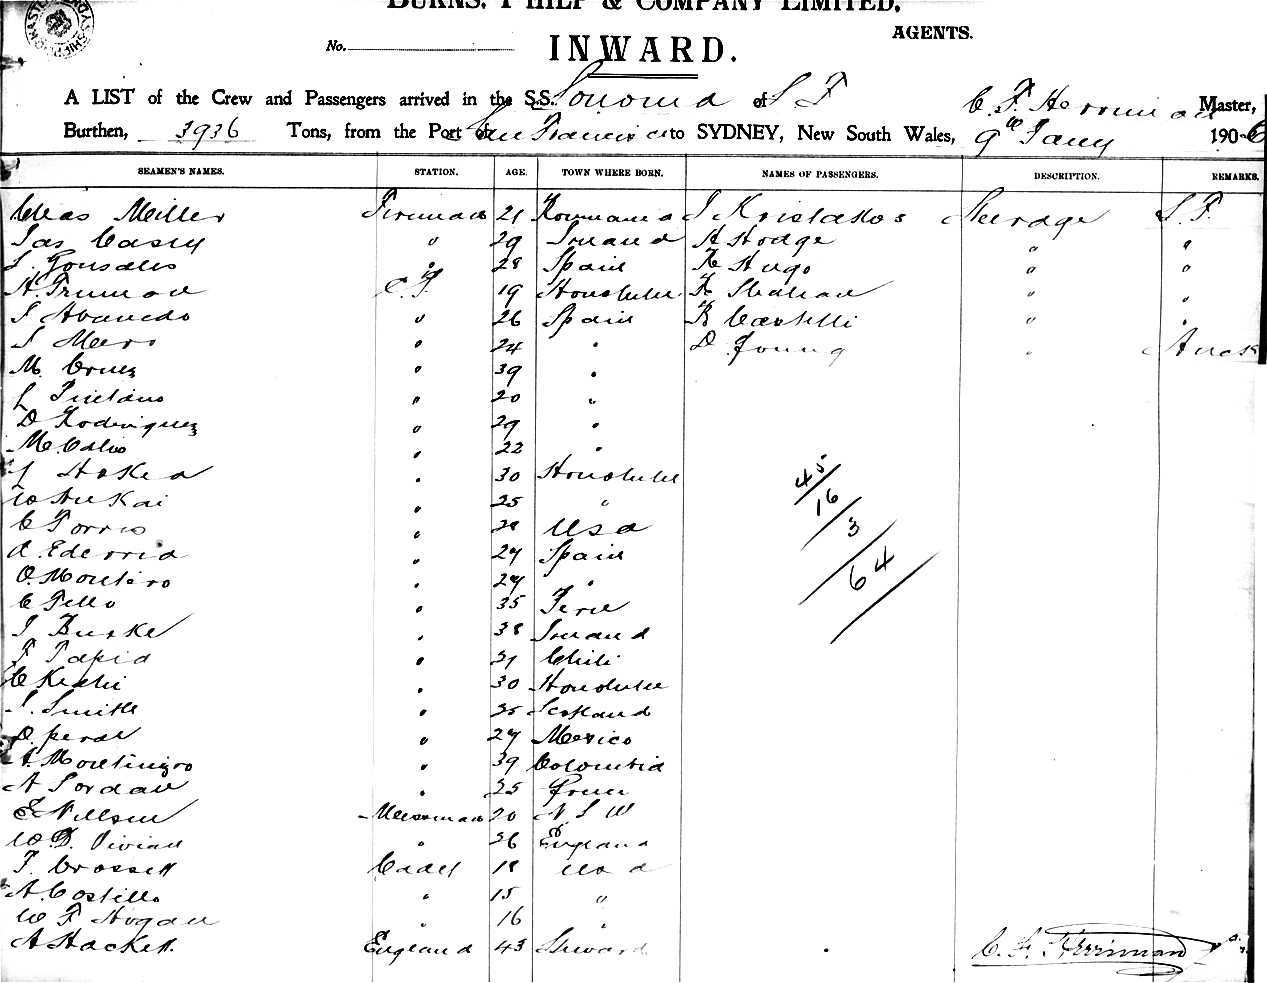 BURNS, PHILP & COMPANY LIMITED.
AGENTS.
No.
INWARD.
A LIST of the Crew and Passengers arrived in the S.S. Sonoma of S F C. F. Herriman Master,
Burthen, 3936 Tons, from the Port of San Francisco to SYDNEY, New South Wales, 9th Jany 1906
SEAMEN'S NAMES. STATION. AGE. TOWN WHERE BORN. NAMES OF PASSENGERS. DESCRIPTION. REMARKS.
Chas Miller Fireman 21 Roumania J Kristakos Steerage S.F.
Jas Casey " 29 Ireland H Hodge " "
J. Gonsales " 28 Spain R Hugo " "
H. Truman C.P. 19 Honolulu F Shahan " "
" 26 Spain R Castelli " "
J Mero " 24 " D Young " Auck
M. Cruz " 39 "
" 20 "
D Rodriguez " 29 "
M. Calio " 22 "
" 30 Honolulu
" 25 "
C Torres " 28 USA
" 27 Spain
O. Montero " 27 "
C Tello " 35 Peru
J Burke " 38 Ireland
F Tapia " 31 Chili
" 30 Honolulu
J. Smith " 35 Scotland
" 27 Mexico
A. Montinegro " 39 Colombia
A Jordan " 25
E Nillsen Messman 20 N S W
W. D. Vivian " 36 England
T. Crossett Cadet 18 USA
A. Costello " 15 "
W F Hogan " 16 "
A Hackett England 43 Steward
45
16
3
64
C. F. Herriman